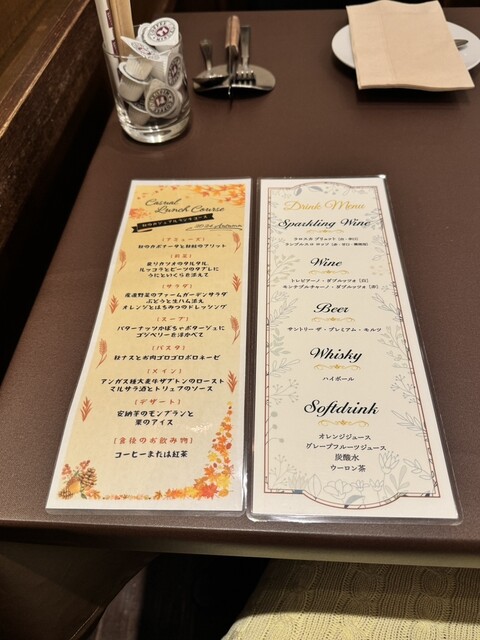 Casual
Lunch Course
秋のカジュアルランチコース
Autumn
[アミューズ]
[前菜]
炙りカツオのタルタル、
ルッコラとビーツのタブレに
うにといくらを添えて
[サラダ]
産直野菜のファームガーデンサラダ
ぶどうと生ハム添え
オレンジとはちみつのドレッシング
[スープ]
バターナッツかぼちゃポタージュに
ゴジベリーを浮かべて
[パスタ]
秋ナスとお肉ゴロゴロボロネーゼ
[メイン]
アンガス種大麦牛ザブトンのロースト
マルサラ酒とトリュフのソース
[デザート]
安納芋のモンブランと
栗のアイス
[食後のお飲み物]
コーヒーまたは紅茶
Drink Menu
Sparkling Wine
Wine
トレビアーノ・ダブルッツオ（白）
モンテプルチャーノ・ダブルッツオ（赤）
Beer
サントリー ザ・プレミアム・モルツ
Whisky
ハイボール
Softdrink
オレンジジュース
グレープフルーツジュース
炭酸水
ウーロン茶